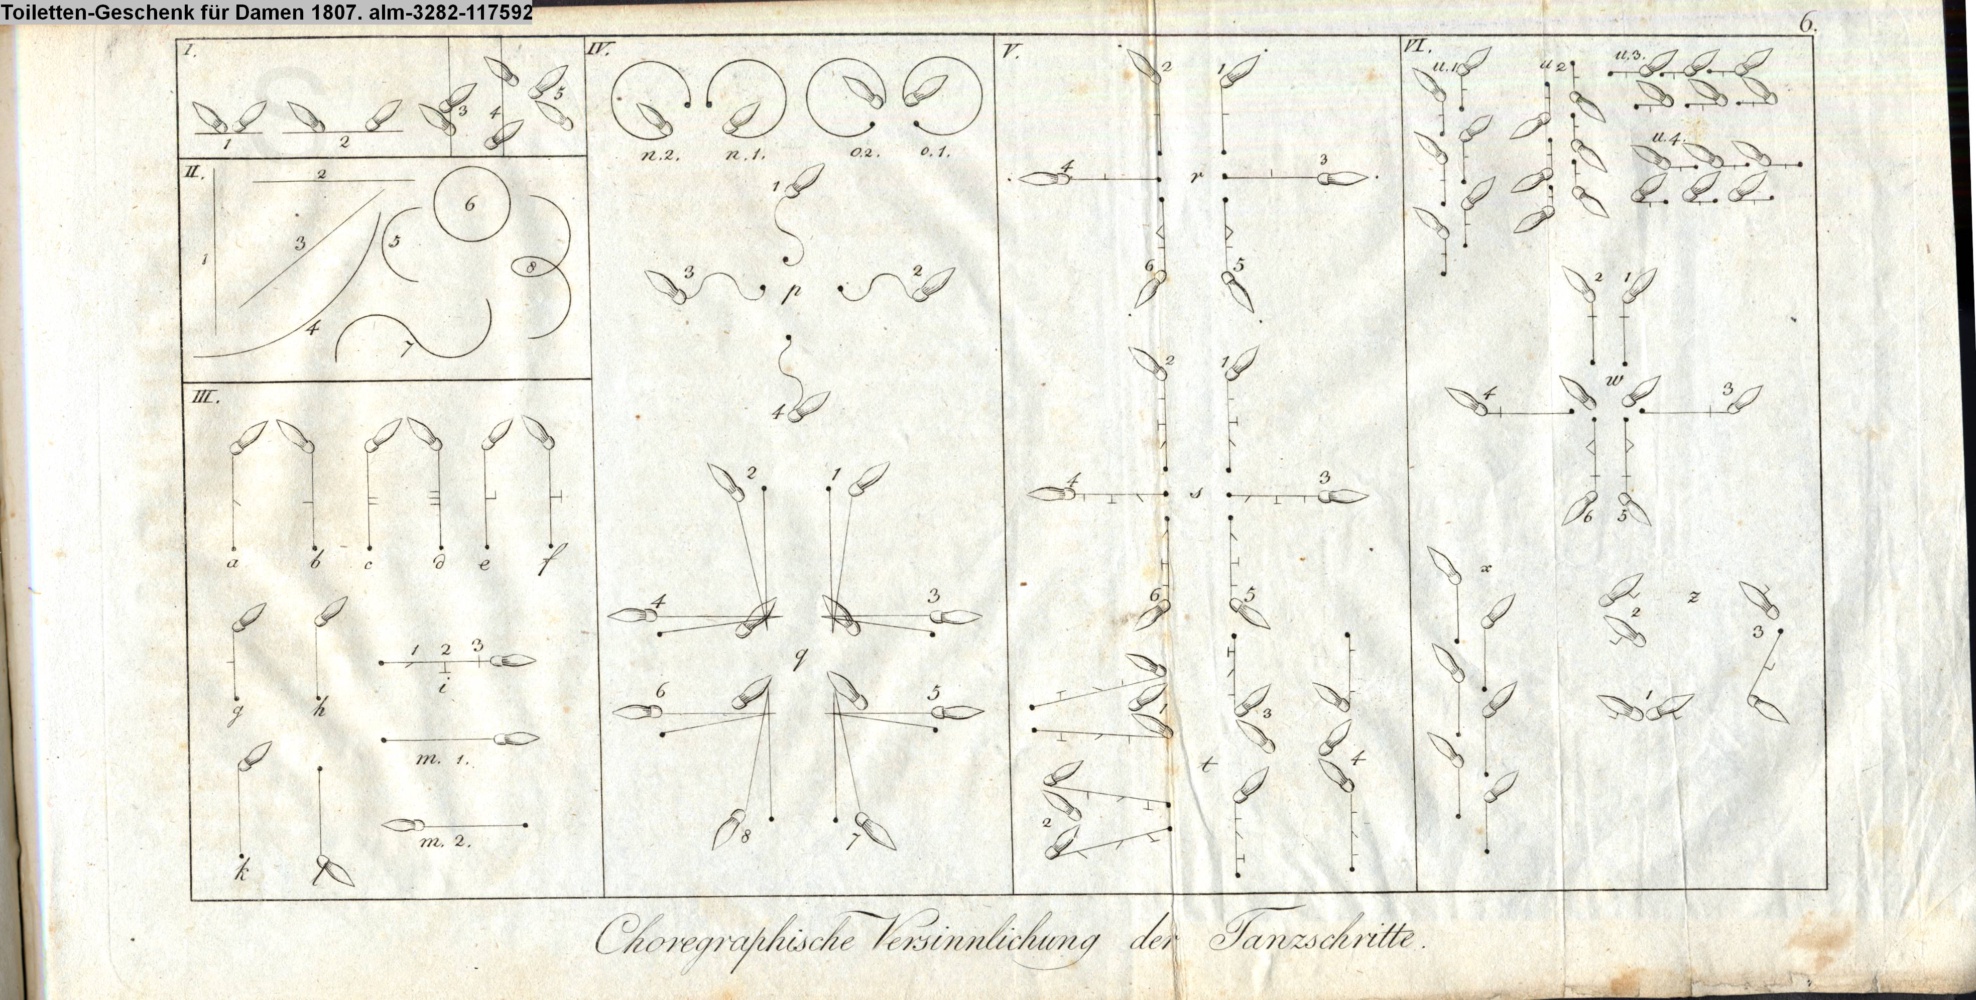 Toiletten-Geschenk für Damen 1807. alm-3282-117592
6.
I.
1 2 3 4 5
II.
1 2 3 4 5 6 7 8
III.
a b c d e f
g h 1 2 3
i
m. 1.
k l m. 2.
IV.
n.2. n.1. o.2. o.1.
1
3 p 2
4
2 1
4 3
q
6 5
8 7
V.
2 1
4 r 3
6 5
2 1
4 s 3
6 5
1 3
t 4
2
VI.
u.1 u 2 u.3.
u.4.
2 1
w
4 3
6 5
x
2 z 3
1
Choregraphische Versinnlichung der Tanzschritte.